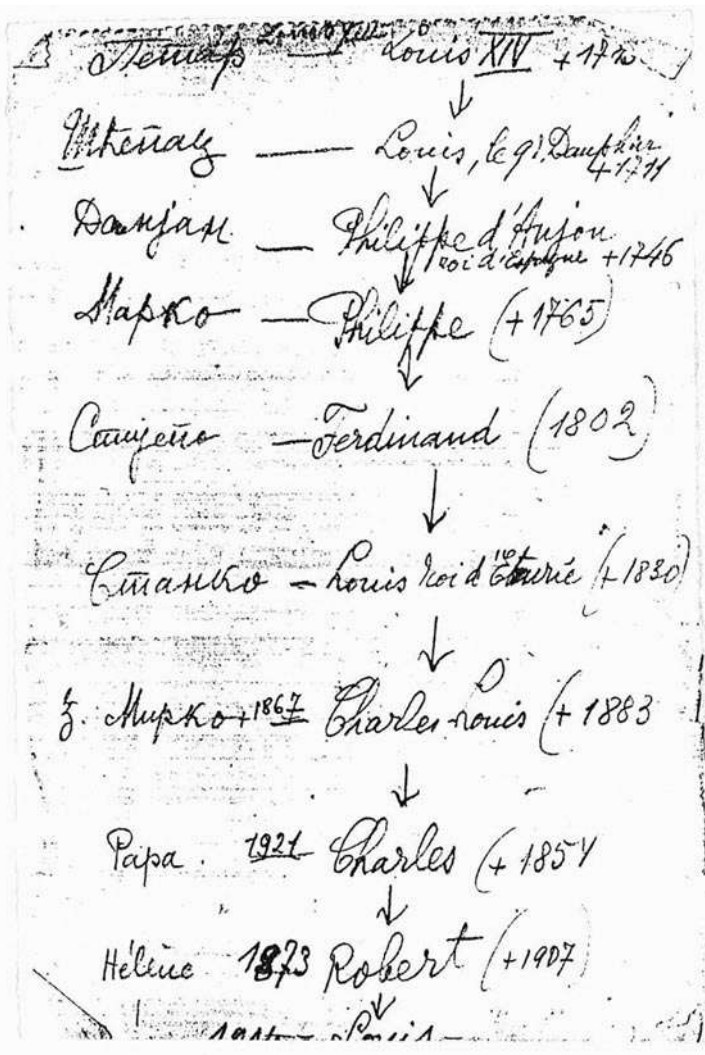 Петар — Louis XIV +17
Шћепац — Louis, le gd. Dauphin
+1711
Данјан — Philippe d'Anjou
roi d'Espagne +1746
Марко — Philippe (+1765)
Стијепо — Ferdinand (1802)
Станко — Louis roi d'Etrurie (+1830)
з. Мирко +1867 Charles Louis (+1883
Papa. 1921 Charles (+1854
Hélène 1873 Robert (+1907)
Louis